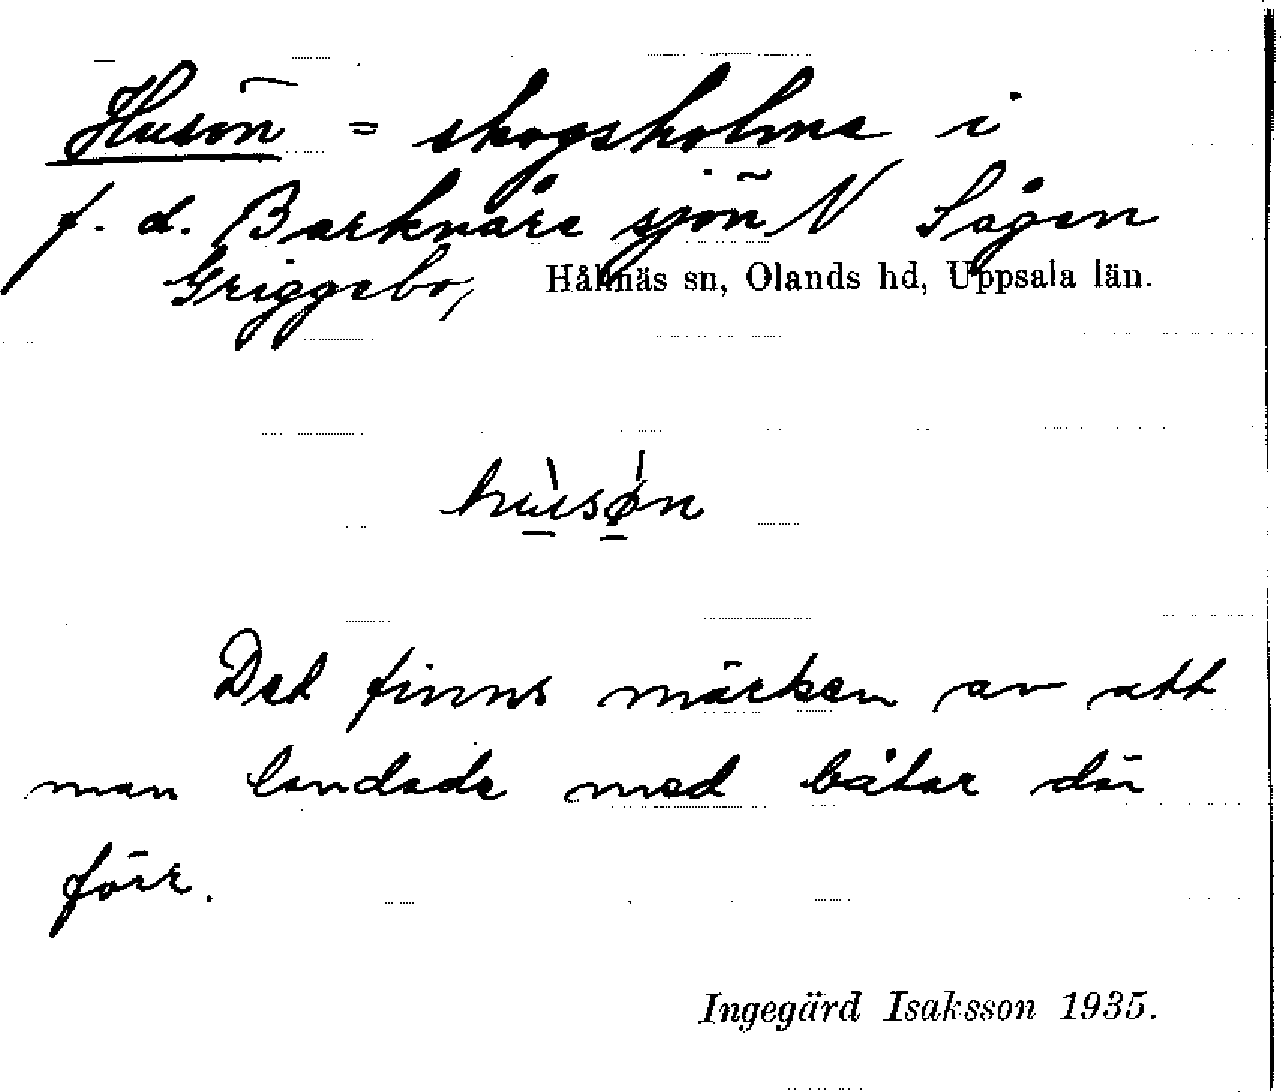 Husön = skogsholme i
f. d. Barknåre sjön N Sågen
Griggebo, Hållnäs sn, Olands hd, Uppsala län.
hùsǿn
Det finns märken av att
man landade med båtar där
förr.
Ingegärd Isaksson 1935.